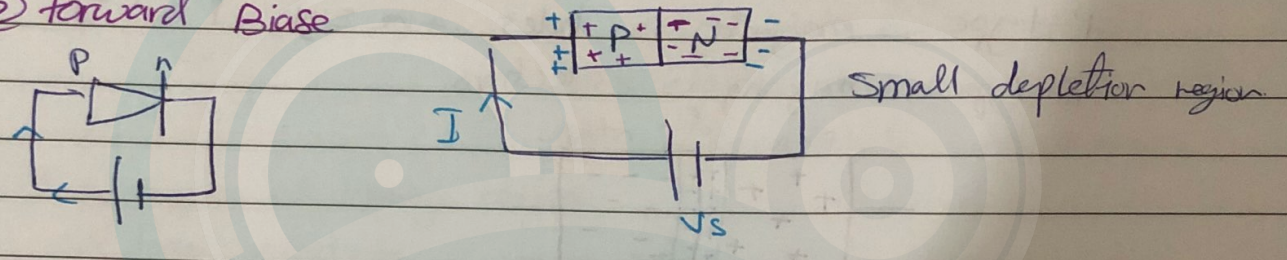 2) forward Biase
P n
+ + P + N - -
Small depletion region
I
Vs